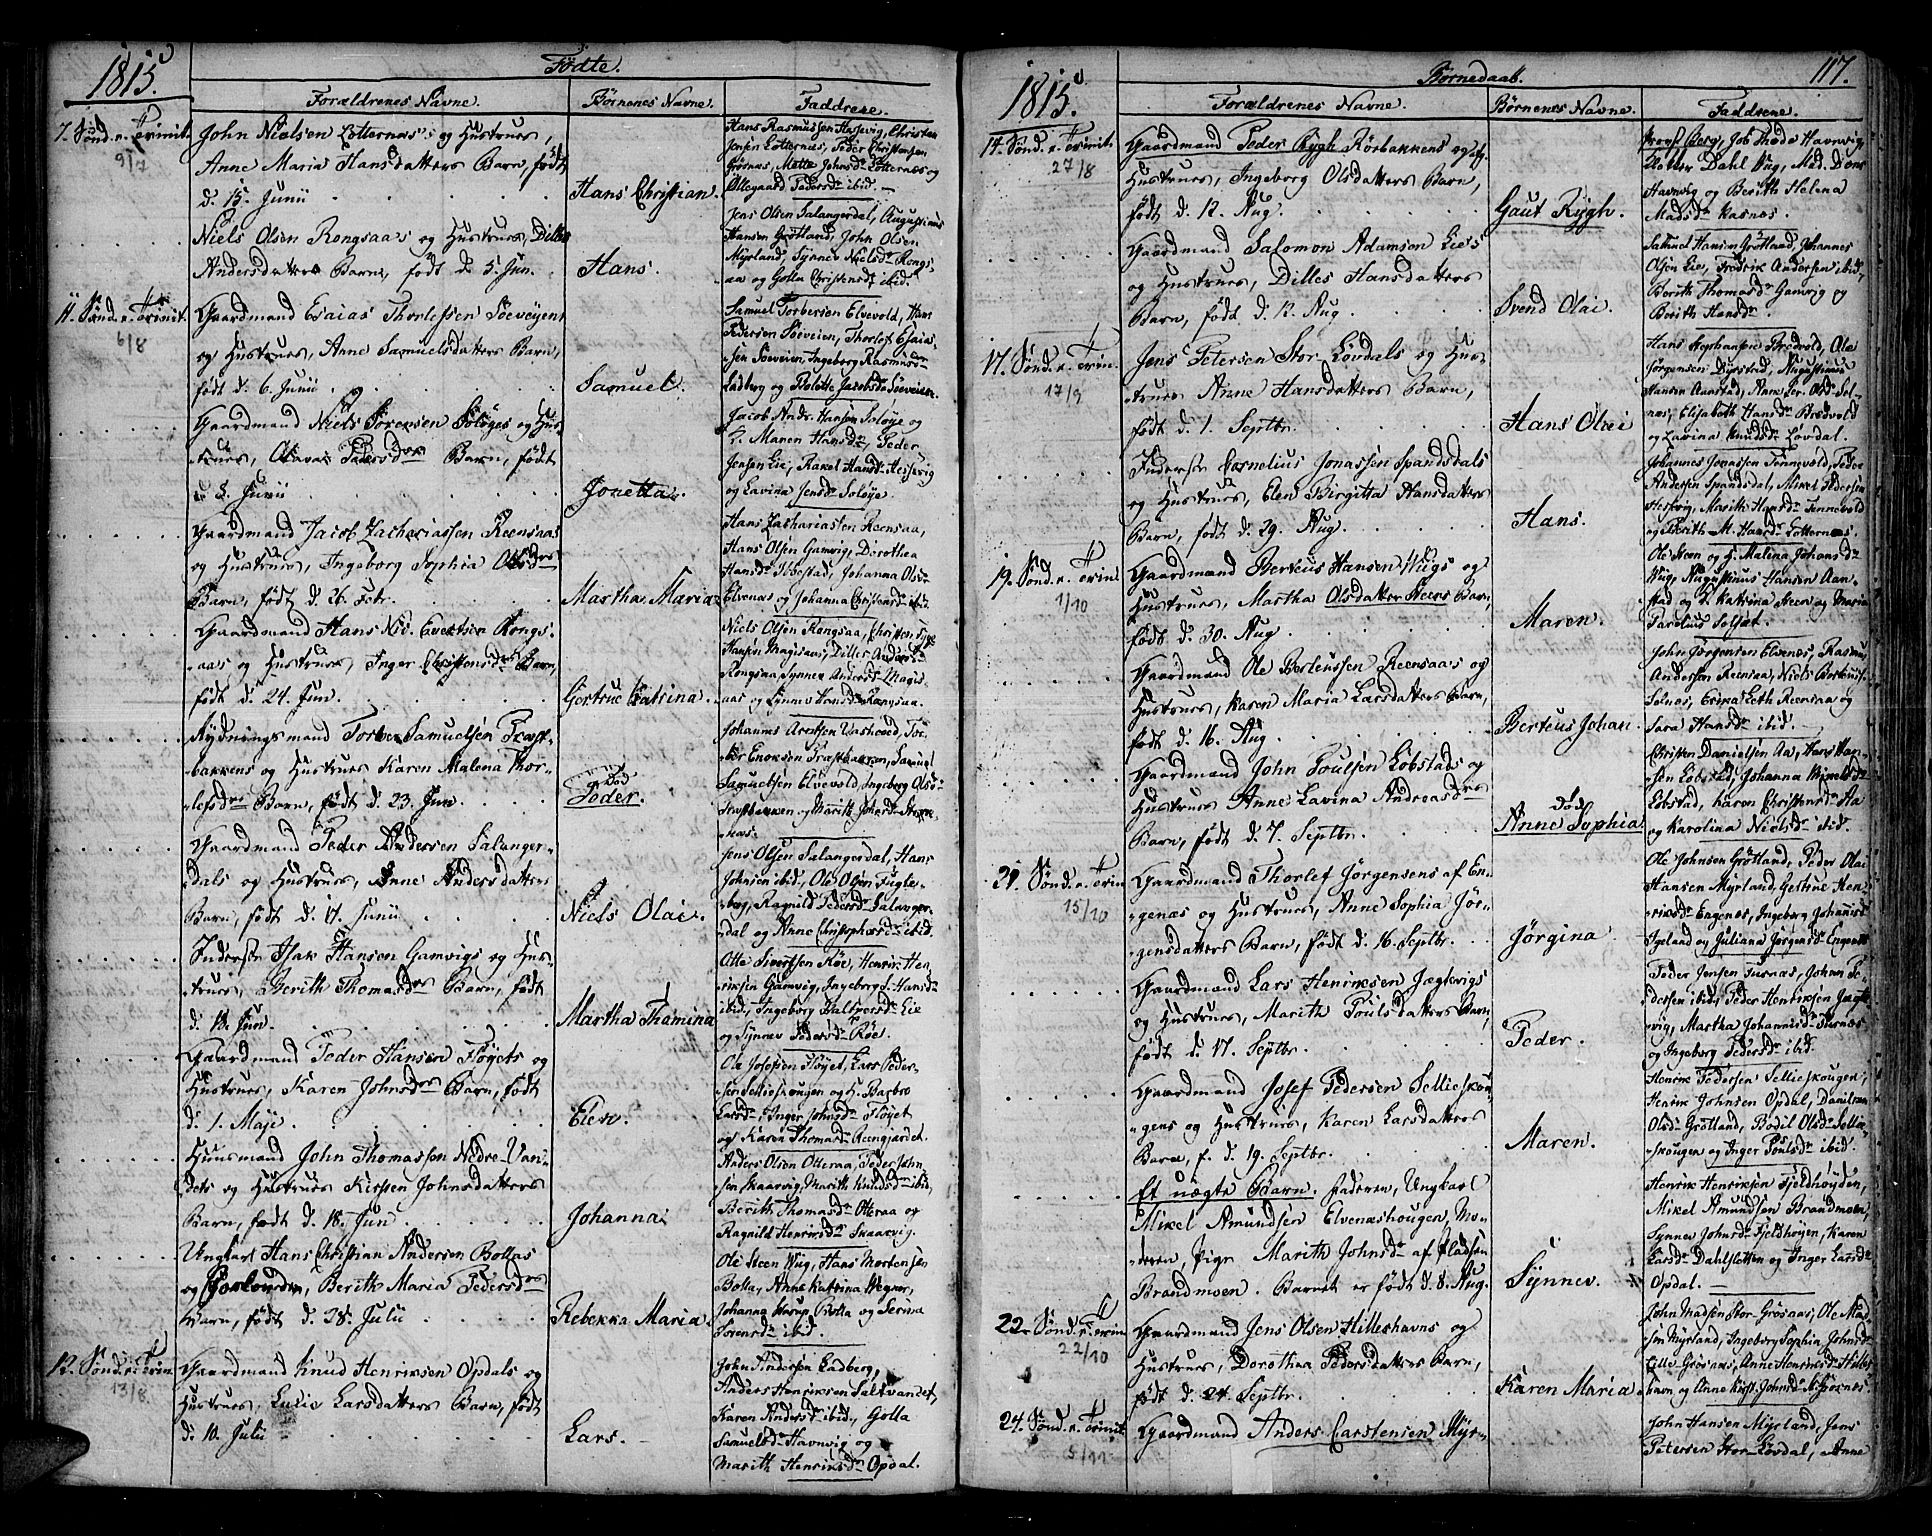 1815.
Födte.
Forældrenes Navne. Börnenes Navne. Faddrene.
7. Sönd. e. Trinit.
9/7
John Nielsen Lotternæs's og Hustrues,
Anne Maria Hansdatters Barn, født
d. 15. Junii
Hans Christian.
Hans Rasmussen Hasevig, Christen
Jensen Lotternæs, Peder Christensen
Grönnæs, Mette Johnsd. Lotternæs og
Ollegaard Pedersd. ibid.
Niels Olsen Rongsaas og Hustrues, Dilles
Andersdatters Barn, født d. 5. Jun.
Hans.
Jens Olsen Salangerdal, Augustinus
Hansen Grötland, John Olsen
Myrland, Synnev Nielsd. Rongs-
aa og Golla Christensd. ibid.
11. Sönd. e. Trinit.
6/8
Gaardmand Esaias Thorlefsen Söeveiens
og Hustrues, Anne Samuelsdatters Barn,
født d. 6. Junii
Samuel.
Samuel Torbersen Elvevold, Hans
Pedersen Söeveien, Thorlef Esaia-
sen Söeveien, Ingeborg Rasmusd.
Ladberg og Rolette Jacobsd. Söeveien.
Gaardmand Niels Sörensen Solöyes og Hus-
trues, Olava Pedersdrs Barn, født
d. 3. Junii
Jonetta.
Jacob Andr. Hansen Solöye og
H. Maren Hansd., Peder
Jensen Eie, Rakel Hansd. Hessevig
og Lavina Jensd. Solöye.
Gaardmand Jacob Zachariassen Reensaas
og Hustrues, Ingeborg Sophia Olsdrs
Barn, født d. 26. Febr.
Martha Maria
Hans Zachariassen Reensaa,
Hans Olsen Gamvig, Dorothea
Hansd. Ibbestad, Johanna Olsd.
Elvenæs og Johanna Christensd. ibid.
Gaardmand Hans Nic. Evertsen Rongs-
aas og Hustrues, Inger Christensdrs Barn,
født d. 24. Jun.
Gjertrue Catrina.
Niels Olsen Rongsaa, Christen
Hansen Magisaas, Dilles Andersd.
Rongsaa, Synnev Andersd. Magis-
aas og Synnev Hansd. Rongsaa.
Rydningsmand Torber Samuelsen Præst-
bakkens og Hustrues Karen Malena Thor-
lefsdrs Barn, født d. 23. Jun.
död
Peder.
Johannes Arntsen Vashoved, Tor-
ber Enoksen Præstbakken, Samuel
Samuelsen Elvevold, Ingeborg Olsd.
Præstbakken og Marith Johnsd.
næs.
Gaardmand Peder Andersen Salanger-
dals og Hustrues, Anne Andersdatters
Barn, født d. 17. Junii
Niels Olai.
Jens Olsen Salangerdal, Hans
Johnsen ibid., Ole Olsen Fugle-
berg, Ragnild Pedersd. Salanger-
dal og Anne Christophersd. ibid.
Inderst Isak Hansen Gamvigs og Hus-
trues, Berith Thomasdrs Barn, født
d. 18. Jun.
Martha Thomina
Otte Sivertsen Röe, Henrik Hen-
riksen Gamvig, Ingeborg L. Hansd.
ibid., Ingeborg Halsteensd. Eie
og Synnev Pedersd. Röe.
Gaardmand Peder Hansen Flöyets og
Hustrues, Karen Johnsdrs Barn, født
d. 1. Maji
Elen.
Ole Josefsen Flöyet, Lars Peder-
sen Sellieskougen og H. Barbro
Larsd., Inger Johnsd. Flöyet
og Karen Thomasd. Reengjerdet.
Huusmand John Thomassen Nedre-Van-
dets og Hustrues Kirsten Johnsdatters
Barn, født d. 18. Jun.
Johanna
Anders Olsen Otteraa, Peder John-
sen Skaarvig, Marith Knudsd. ibid.,
Berith Thomasd. Otteraa og
Ragnild Henriksd. Skaarvig.
Ungkarl Hans Christian Andersen Bollas
og Berith Maria Pedersdrs
Barn, født d. 28. Julii
Rebekka Maria.
Ole Steen Wug, Hans Mortensen
Bolla, Anne Katrina Wegner,
Johanna Bolla og Serina
Sörensd. ibid.
12. Sönd. e. Trin.
13/8
Gaardmand Knud Henriksen Opdals og
Hustrues, Lucie Larsdatters Barn, født
d. 10. Julii
Lars.
John Andersen Ladberg,
Anders Henriksen Saltvandet,
Karen Andersd. ibid., Golla
Samuelsd. Havnvig og
Marith Henriksd. Opdal.
1815.
Börnedaab.
117.
Forældrenes Navne. Börnenes Navne. Faddrene.
14. Sönd. e. Trinit.
27/8
Gaardmand Peder Rygh Rörbakkens og
Hustrues, Ingeborg Olsdatters Barn,
født d. 12. Aug.
Gaut Rygh.
Provst Berg, Job Thode Havnvig,
Klokker Dahl Wug, Mad. Dons
Havnvig og Berith Helena
Madsd. Kasnes.
Gaardmand Salomon Adamsen Eies
og Hustrues, Dilles Hansdatters
Barn, född d. 12. Aug.
Svend Olai.
Samuel Hansen Grötland, Johannes
Olsen Eie, Fredrik Andersen ibid.,
Berith Thomasd. Gamvig og
Berith Hansd.
17. Sönd. e. Trin.
17/9
Jens Petersen Stor-Lövdals og Hus-
trues Anne Hansdatters Barn,
født d. 1. Septbr.
Hans Olai
Hans Bredvold, Ole
Jörgensen Dyrstad, Augustinus
Hansen Aanstad, Anne Ler. Olsd. Sel-
næs, Elisabeth Hansd. Bredvold
og Lavina Knudsd. Lövdal.
Inderst Cornelius Jonassen Spandsdals
og Hustrues, Elen Birgitta Hansdatters
Barn, født d. 29. Aug.
Hans.
Johannes Jonassen Tennevold, Peder
Andersen Spansdal, Mikel Pedersen
Hesevig, Marith Hansd. Tennevold
og Berith M. Hansd. Lotternæs.
19. Sönd. e. Trin.
1/10
Gaardmand Berteus Hansen Wugs og
Hustrues, Martha Olsdatter Steens Barn,
født d. 30. Aug.
Maren.
Ole Steen og H. Malena Johansd.
Wug, Augustinus Hansen Aan-
stad og H. Katrina Steen og Maria
Parelius Selset.
Gaardmand Ole Berteussen Reensaas og
Hustrues, Karen Maria Larsdatters Barn,
født d. 16. Aug.
Berteus Johan.
John Jörgensen Elvenes, Rasmus
Andersen Reensaa, Niels Berteuss.
Solnes, Erika Leth Reensaa og
Sara Hansd. ibid.
Gaardmand John Poulsen Löbstads og
Hustrues Anne Lavina Andreasdrs
Barn, født d. 7. Septbr.
död
Anne Sophia
Christen Danielsen Aa, Hans Han-
sen Löbstad, Johanna Mikelsd.
Löbstad, Karen Christensd. Aa
og Karolina Nielsd. ibid.
21. Sönd. e. Trin.
15/10
Gaardmand Thorlef Jörgensens af En-
genæs og Hustrues, Anne Sophia Jör-
gensdatters Barn, født d. 16. Septbr.
Jörgina
Ole Johnsen Grötland, Peder Olai
Hansen Myrland, Gertrue Hen-
riksd. Engenes, Ingeborg Johannisd.
Igeland og Juliana Jörgensd. Engenes
Gaardmand Lars Henriksen Jægtevigs
og Hustrues, Marith Poulsdatters Barn,
født d. 17. Septbr.
Peder.
Peder Jensen Turnæs, Johan Pe-
dersen ibid., Peder Henriksen Jægte-
vig, Martha Johannisd. Turnæs
og Ingeborg Pedersd. ibid.
Gaardmand Josef Pedersen Sellieskou-
gens og Hustrues, Karen Larsdatters
Barn, f. d. 19. Septbr.
Maren.
Henrik Pedersen Sellieskougen,
Henrik Johnsen Opdal,
Olsd. Grötland, Bodil Olsd. Sellie-
skougen og Inger Poulsd. ibid.
Et uægte Barn. Faderen, Ungkarl
Mikel Amundsen Elvenæshougen, Mo-
deren, Pige Marith Johnsd. af Pladsen
Brandmoen. Barnet er født d. 8. Aug.
Synnev.
Henrik Henriksen Fjeldhöyden,
Mikel Amundsen Brandmoen,
Synnev Johnsd. Fjeldhöyen, Karen
Larsd. Dahlsletten og Inger Larsd.
Opdal.
22. Sönd. e. Trin.
22/10
Gaardmand Jens Olsen Hilleshavns og
Hustrues, Dorothea Pedersdatters Barn,
født d. 24. Septbr.
Karen Maria
John Madsen Stor Grösaas, Ole Mad-
sen Myrland, Ingeborg Sophia Johnsd.
Lille Grösaas, Anne Henriksd. Hilles-
havn og Anne Kirst. Johnsd.
24. Sönd. e. Trinit.
5/11
Gaardmand Anders Carstensen Myr-
John Hansen Myrland, Jens
Petersen Stor-Lövdal, Anne